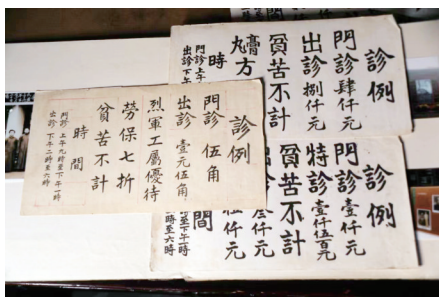 診例
門診 肆仟元
出診 捌仟元
貧苦不計
膏方
丸
時
門診 上午
出診 下午
診例
門診 伍角
出診 壹元伍角
烈軍工屬優待
勞保七折
貧苦不計
時間
門診 上午九時至下午一時
出診 下午二時至六時
診例
門診 壹仟元
特診 壹仟伍百元
貧苦不計
出診 叁仟元
伍仟元
間
時至下午一時
時至六時